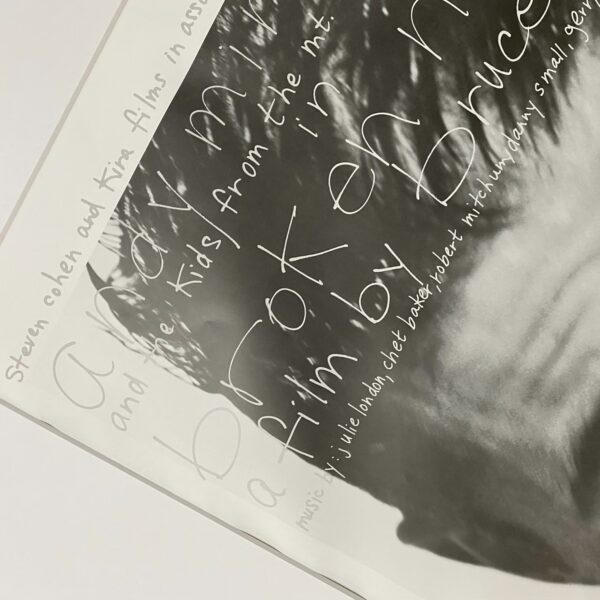 Steven cohen and Kira films in asso
andy min
and the kids from the mt.
in
broken n
a film by bruce
music by: julie london, chet baker, robert mitchum, danny small, gerry